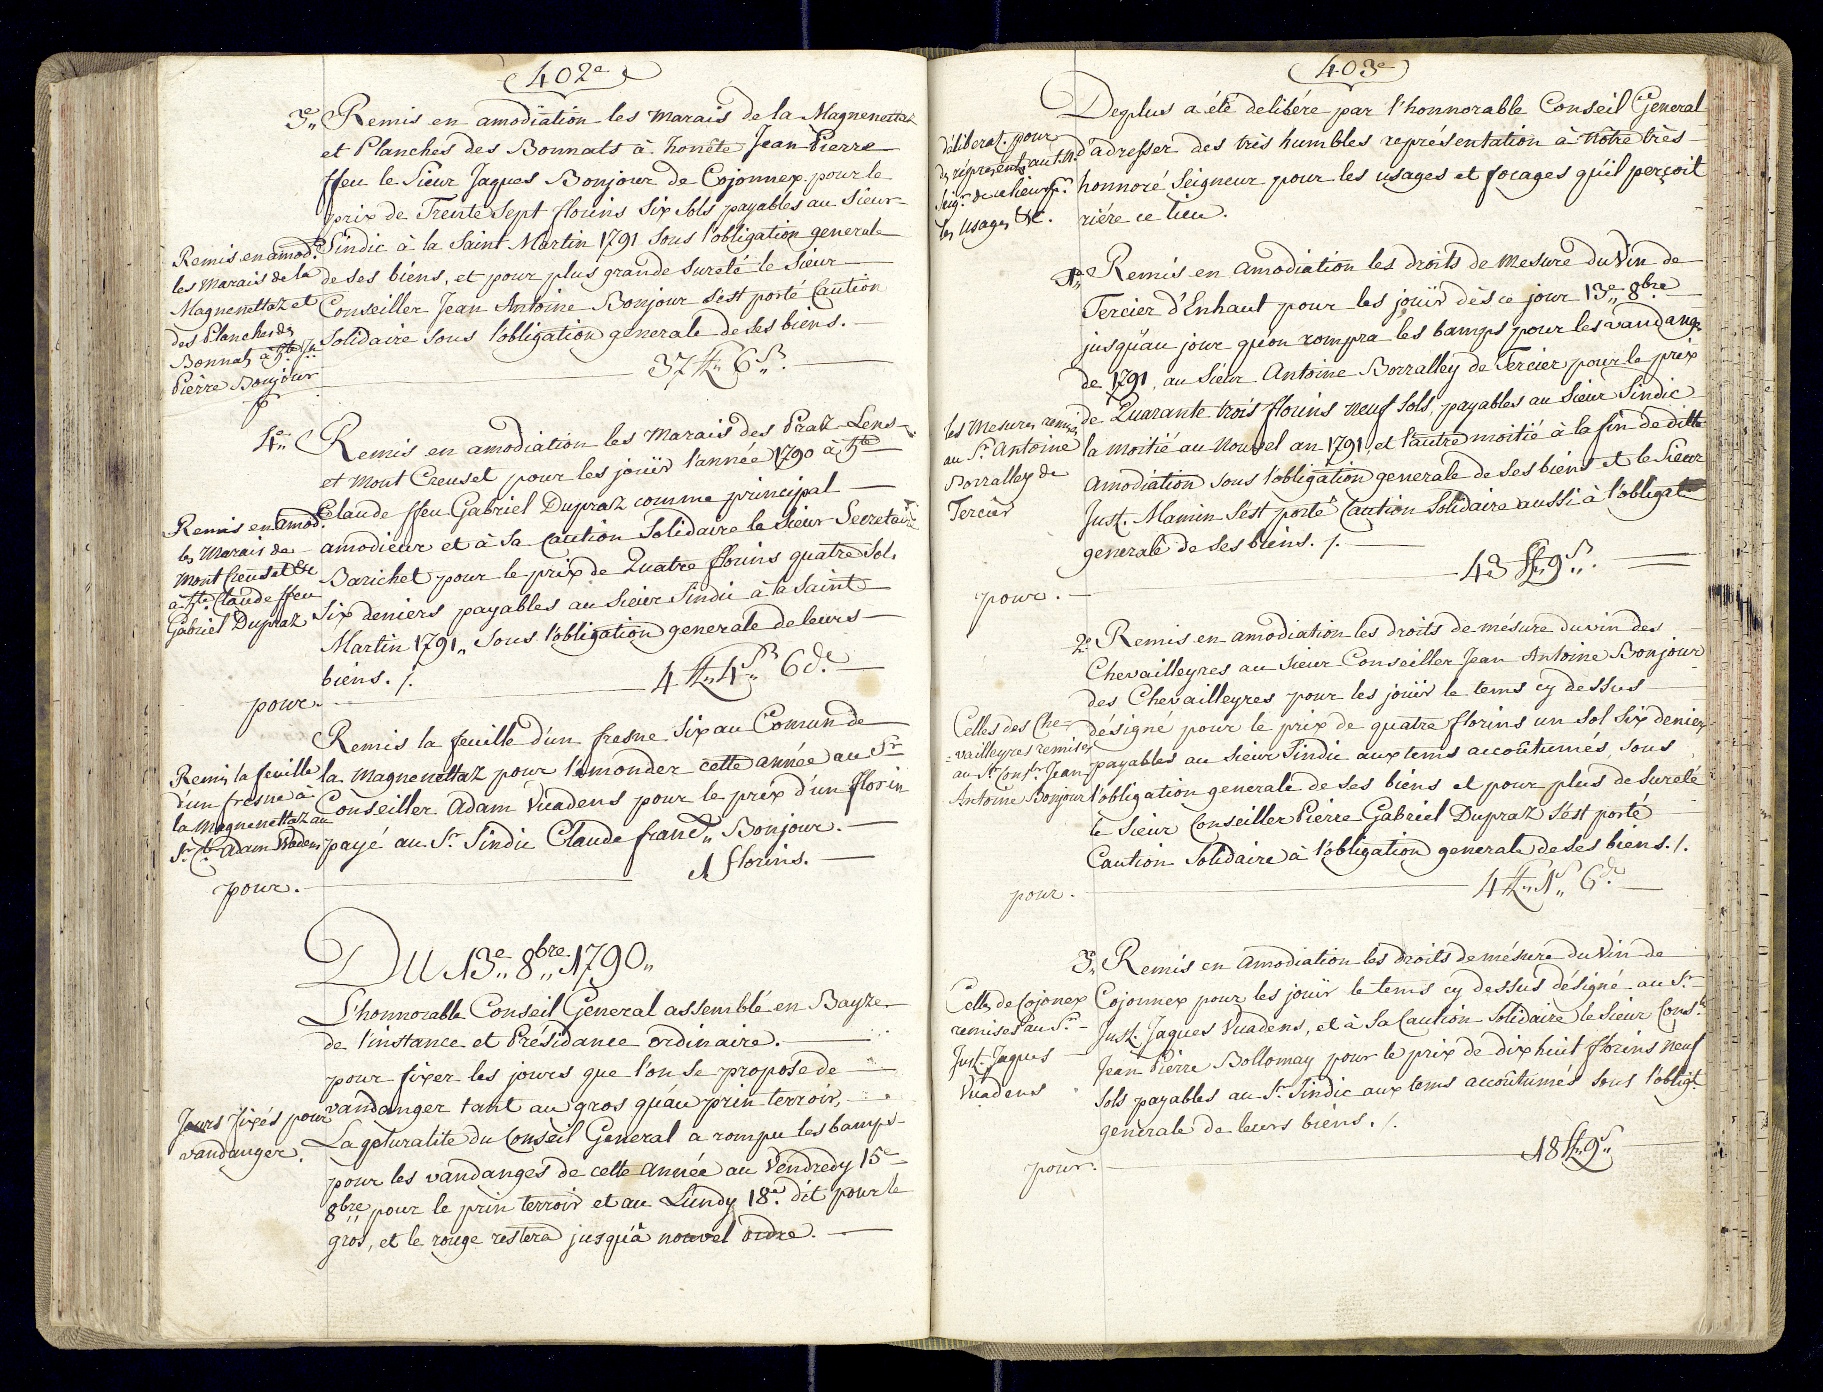 402e
3e,, Remis en amodiation les marais de la Magnenettaz
et Planches des Bonnats à honête Jean Pierre
ffeu le Sieur Jaques Bonjour de Cojonnex pour le
prix de Trente Sept florins Six Sols payables au Sieur
Sindic à la Saint Martin 1791 Sous l'obligation generale
de ses biens, et pour plus grande Sureté le Sieur
Conseiller Jean Antoine Bonjour s'est porté Caution
Solidaire Sous l'obligation generale de ses biens.
Remis en amod.
les Marais de la
Magnenettaz et
des Planches des
Bonnats à hte Jn
Pierre Bonjour
p
37 ff 6 ß.
4e,, Remis en amodiation les marais des Praz Lens
et Mont Creuset pour les jouïr l'année 1790 à hte
Claude ffeu Gabriel Dupraz comme principal
amodieur et à Sa Caution Solidaire le Sieur Secretaire
Barichet pour le prix de Quatre florins quatre Sols
Six deniers payables au Sieur Sindic à la Saint
Martin 1791,, Sous l'obligation generale de leurs
biens. /.
Remis en amod.
les Marais de
Mont Creuset &c
à hte Claude ffeu
Gabriel Dupraz
pour. 4 ff 4 ß 6 de
Remis la feuille d'un fresne Six au Comun de
la Magnenettaz pour l'émonder cette année au Sr
Conseiller Adam Vuadens pour le prix d'un florin
payé au Sr. Sindic Claude Franç,, Bonjour.
Remis la feuille
d'un fresne à
la Magnenettaz au
Sr. Cr. Adam Vuadens
pour. 1 florins.
Du 13e,, 8bre,, 1790,,
L'honnorable Conseil General assemblé en Bayze
de l'instance et Présidance ordinaire.
pour fixer les jours que l'on se propose de
vandanger tant au gros qu'au prin terroir,
La pluralité du Conseil General a rompu les bamps
pour les vandanges de cette année au Vendredy 15e
8bre pour le prin terroir et au Lundy 18e. dit pour le
gros, et le rouge restera jusqu'à nouvel ordre.
Jours fixés pour
vandanger.
403e
Deplus a été delibére par l'honnorable Conseil General
d'adresser des très humbles représentation à Nôtre très
honnoré Seigneur pour les usages et focages qu'il perçoit
riére ce lieu.
déliberat. pour
des réprésent. au t. h.
Seigr. de ce lieu pr.
les Usages &c.
1e,, Remis en amodiation les droits de Mesure du Vin de
Tercier d'Enhaut pour les jouïr dès ce jour 13e,, 8bre
jusqu'au jour qu'on rompra les bamps pour les vandang.
de 1791, au Sieur Antoine Borralley de Tercier pour le prix
de Quarante trois florins neuf Sols, payables au Sieur Sindic
la moitié au Nouvel an 1791, et l'autre moitié à la fin de ditte
amodiation Sous l'obligation generale de Ses biens et le Sieur
Just. Mamin S'est porté Caution Solidaire aussi à l'obligat
generale de Ses biens. /.
les Mesures remis
au Sr. Antoine
Borralley de
Tercier
pour. 43 ff 9 ß.
2e Remis en amodiation les droits de mésure du vin des
Chevailleyres au Sieur Conseiller Jean Antoine Bonjour
des Chevailleyres pour les jouïr le tems cy dessus
désigné pour le prix de quatre florins un Sol Six deniers
payables au Sieur Sindic aux tems accoûtumés, Sous
l'obligation generale de Ses biens et pour plus de Sureté
le Sieur Conseiller Pierre Gabriel Dupraz S'est porté
Caution Solidaire à l'obligation generale de Ses biens. /.
Celles des Che=
=vailleyres remises
au Sr Consr. Jean
Antoine Bonjour
pour. 4 ff 1 ß 6 de
3e,, Remis en amodiation les droits de mésure du Vin de
Cojonnex pour les jouïr le tems cy dessus désigné au Sr
Just. Jaques Vuadens, et à Sa Caution Solidaire le Sieur Consr
Jean Pierre Bollomay pour le prix de dix huit florins neuf
Sols payables au Sr. Sindic aux tems accoûtumés Sous l'obligt
generale de leurs biens. /.
Celles de Cojonex
remises au Sr.
Just. Jaques
Vuadens
pour. 18 ff 9 ß